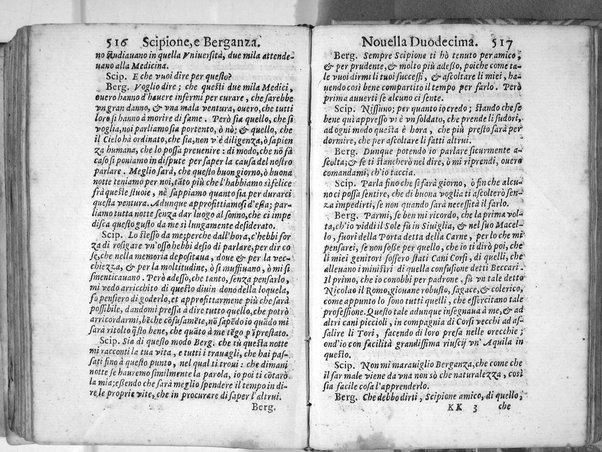 516 Scipione, e Berganza.
no studiauano in quella Vniuersità, due mila attende-
uano alla Medicina.
Scip. E che vuoi dire per questo?
Berg. Voglio dire; che questi due mila Medici,
ouero hanno d'hauere infermi per curare, che sarebbe
vn gran danno, & vna mala ventura, ouero, che tutti
loro si hanno à morire di fame. Però sia quello, che si
voglia, noi parliamo sia portento, ò nò; & quello, che
il Cielo hà ordinato, che sia, non v'è diligenza, ò sapien
za humana, che lo possa preuenire: di modo, che nõ fà
caso si poniamo in dispute per saper la causa del nostro
parlare. Meglio sarà, che questo buon giorno, ò buona
notte teniamo per noi, tãto più che l'habbiamo sì felice
frà queste stuoie, nè sappiamo quanto sia per durarci
questa ventura. Adunque approfittiamosi d'essa; par-
liamo tutta notte senza dar luogo al sonno, che ci impe
disca questo gusto da me sì lungamente desiderato.
Scip. Lo stesso da me; perche dall'hora, c'hebbi for
za di rosigare vn'osso hebbi desio di parlare, per dir co
se, che nella memoria depositaua, doue & per la vec-
chiezza, & per la moltitudine, ò si muffiuano, ò mi si
smenticauano. Però adesso, che tanto, senza pensarlo,
mi vedo arricchito di questo diuin dono della loquela,
fò pensiero di goderlo, et approfittarmene più che sarà
possibile, dandomi pressa à dire tutto quello, che potrò
arricordarmi, bẽche cõfusamẽte, nõ sapẽdo io quãdo mi
sarà ritolto q̃sto bene, che quãto à me tẽgo p̃ prestato.
Scip. Sia di questo modo Berg. che tù questa notte
mi racconti la tua vita, e tutti i trauagli, che hai pas-
sati fino à questo punto, nel qual ti troui: che dimani
notte se haueremo similmente la parola, io poi ti cõtarò
la mia; essendo che sarà meglio spendere il tempo in di-
re le proprie vite, che in procurare di saper l'altrui.
Berg.
Nouella Duodecima. 517
Berg. Sempre Scipione ti hò tenuto per amico,
& per prudente, & molto più adesso, poiche come ta-
le vuoi dirmi li tuoi successi, & ascoltare li miei, hauen-
do così bene compartito il tempo per farlo. Però
prima auuerti se alcuno ci sente.
Scip. Nissuno; per quanto io credo; stando che se
bene qui appresso vi è vn soldato, che prende li sudori,
ad ogni modo questa è hora, che più presto sarà per
dormire, che per ascoltare li fatti altrui.
Berg. Dunque potendo io parlare sicuramente a-
scolta; & se ti stancherò nel dire, ò mi riprendi, ouero
comandami, ch'io taccia.
Scip. Parla fino che si farà giorno, ò fin che alcu-
no ci possa sentire, che di buona voglia ti ascolterò sen-
za impedirti, se non quando sarà necessità il farlo.
Berg. Parmi, se ben mi ricordo, che la prima vol-
ta, ch'io viddi il Sole fù in Siuiglia, & nel suo Macel-
lo, fuori della Porta detta della Carne, per lo che mi
pensarei, se non fosse per quello, che io ti dirò poi, che
li miei genitori fossero stati Cani Corsi, di quelli, che
alleuano i ministri di quella confusione detti Beccari.
Il primo, che io conobbi per padrone, fù vn tale detto
Nicolao il Romo, giouane robusto, sagace, & colerico,
come appunto lo sono tutti quelli, che essercitano tale
professione. Questo tale adunque insegnaua à me, & ad
altri cani piccioli, in compagnia di Corsi vecchi ad as-
salire li Tori, facendo di loro presa nelle orecchie;
ond'io con facilità grandissima riuscij vn' Aquila in
questo.
Scip. Non mi marauiglio Berganza, che come che
il far male viene da vna non sò che naturalezza, così
sia facile cosa l'apprenderlo.
Berg. Che debbo dirti, Scipione amico, di quello,
KK 3 che